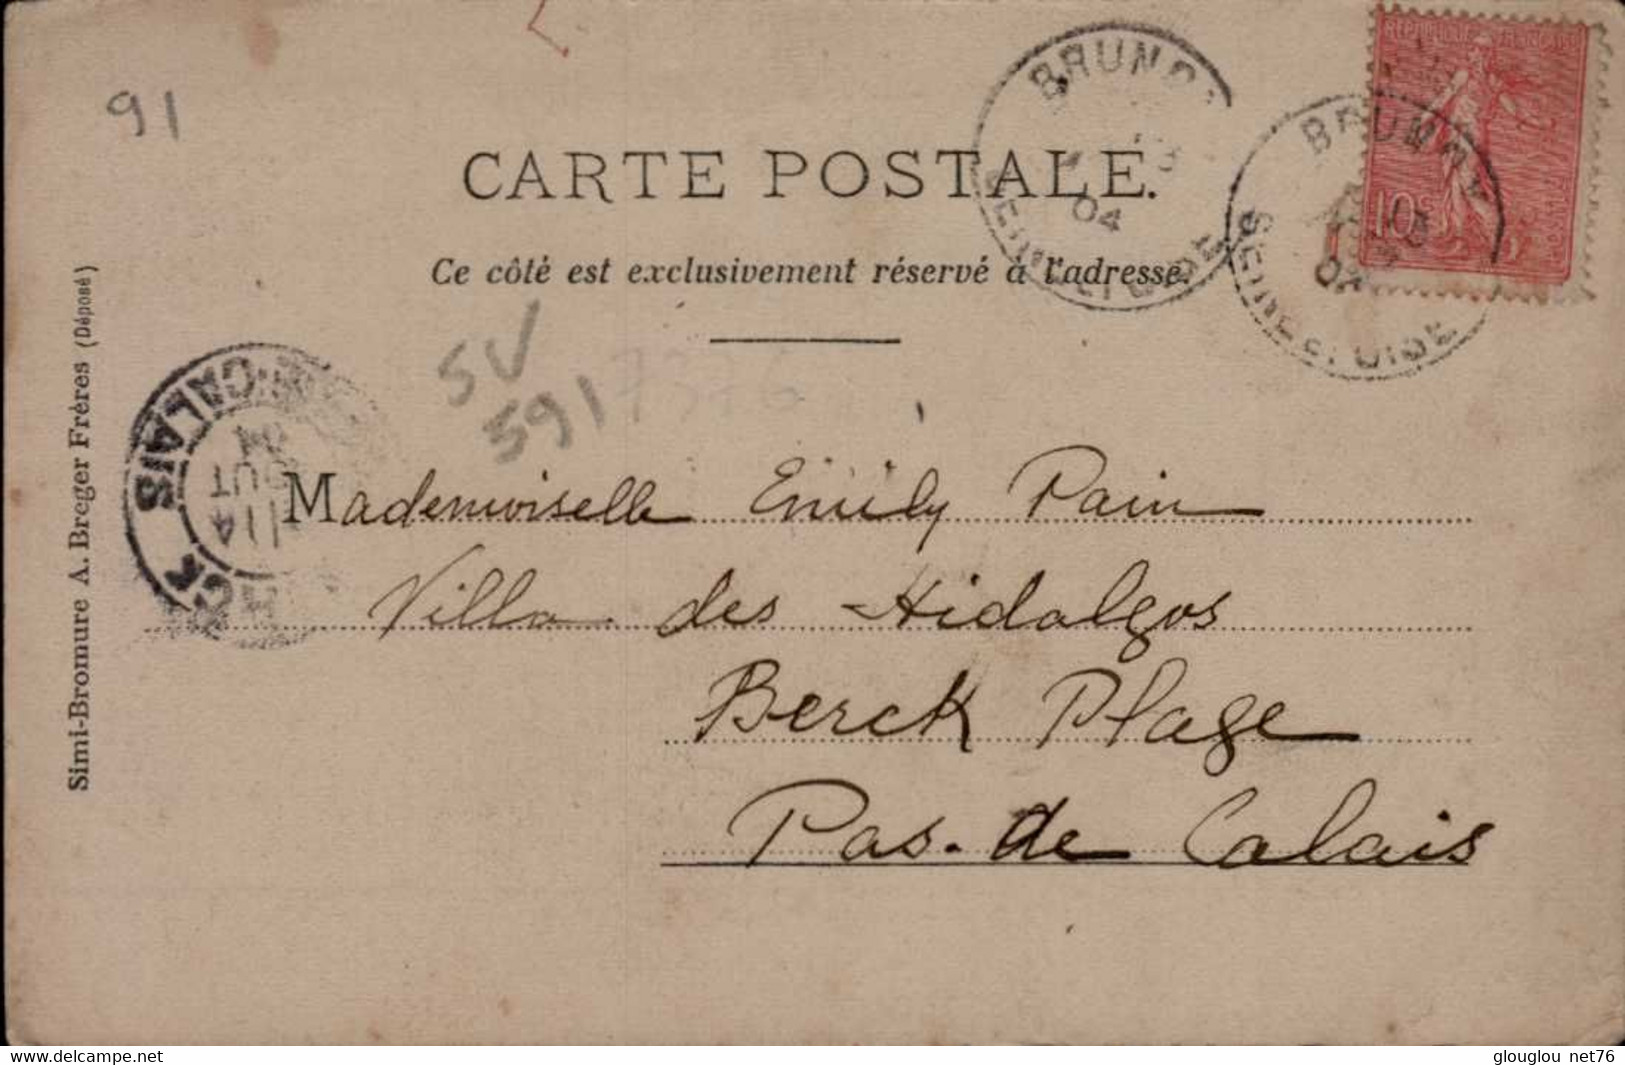 91
RÉPUBLIQUE FRANÇAISE
10c
BRUNOY
04
SEINE ET OISE
BRUNOY
04
SEINE ET OISE
CARTE POSTALE.
Ce côté est exclusivement réservé à l'adresse.
SV
5917376
CALAIS
Simi-Bromure A. Breger Frères (Déposé)
Mademoiselle Emily Pain
Villa des Hidalgos
Berck Plage
Pas-de Calais
www.delcampe.net
glouglou net76